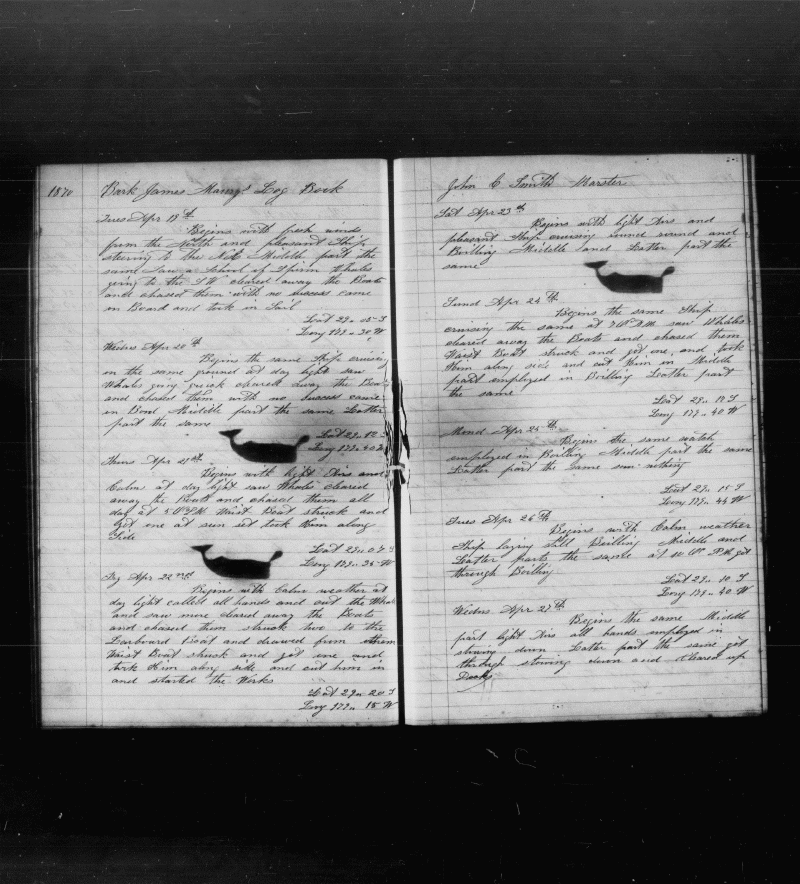 1870 Bark James Maury's Log Book
Tues Apr 19th
Begins with fresh winds
from the North and pleasant Ship
stearing to the NE Middle part the
same Saw a School of Spirm Whales
going to the SW cleared away the Boats
and chased them with no success came
on Board and took in Sail
Latt 29.. 05 S
Long 179.. 30 W
Wedns Apr 20th
Begins the same Ship cruising
in the same ground at day light saw
Whales going quick cleared away the Boats
and chased them with no success came
on Bord Middle part the same Latter
part the same
Latt 29.. 12
Long 179.. 40
Thurs Apr 21st
Begins with light Airs and
Calm at day light saw Whales cleared
away the Boats and chased them all
day at 5 O'P.M. Waist Boat struck and
got one at sun set took Him along
Side
Latt 29.. 07 S
Long 179.. 35 W
Fry Apr 22nd
Begins with Calm weather at
day light called all hands and cut the Whale
and saw more cleared away the Boats
and chased them struck two to the
Larboard Boat and drawed from them
Waist Boat struck and got one and
took Him along side and cut him in
and started the Works
Latt 29.. 20 S
Long 179.. 15 W
John C Smith Marster
Sat Apr 23th
Begins with light Airs and
pleasant Ship cruising round and
Boilling Middle and Latter part the
same
Sund Apr 24th
Begins the same Ship
cruising the same at 7 A.M. saw Whales
cleared away the Boats and chased them
Waist Boat struck and got one and took
Him along side and cut Him in Middle
part employed in Boilling Latter part
the same
Latt 29.. 12 S
Long 179.. 40 W
Mond Apr 25th
Begins the same watch
employed in Boilling Middle part the same
Latter part the same saw nothing
Latt 29.. 15 S
Long 179.. 44 W
Tues Apr 26th
Begins with Calm weather
Ship laying still Boilling Middle and
Latter parts the same at 10 P.M. got
through Boilling
Latt 29.. 10 S
Long 179.. 40 W
Wedns Apr 27th
Begins the same Middle
part light Airs all hands employed in
stowing down Latter part the same got
through stowing down and cleared up
Decks